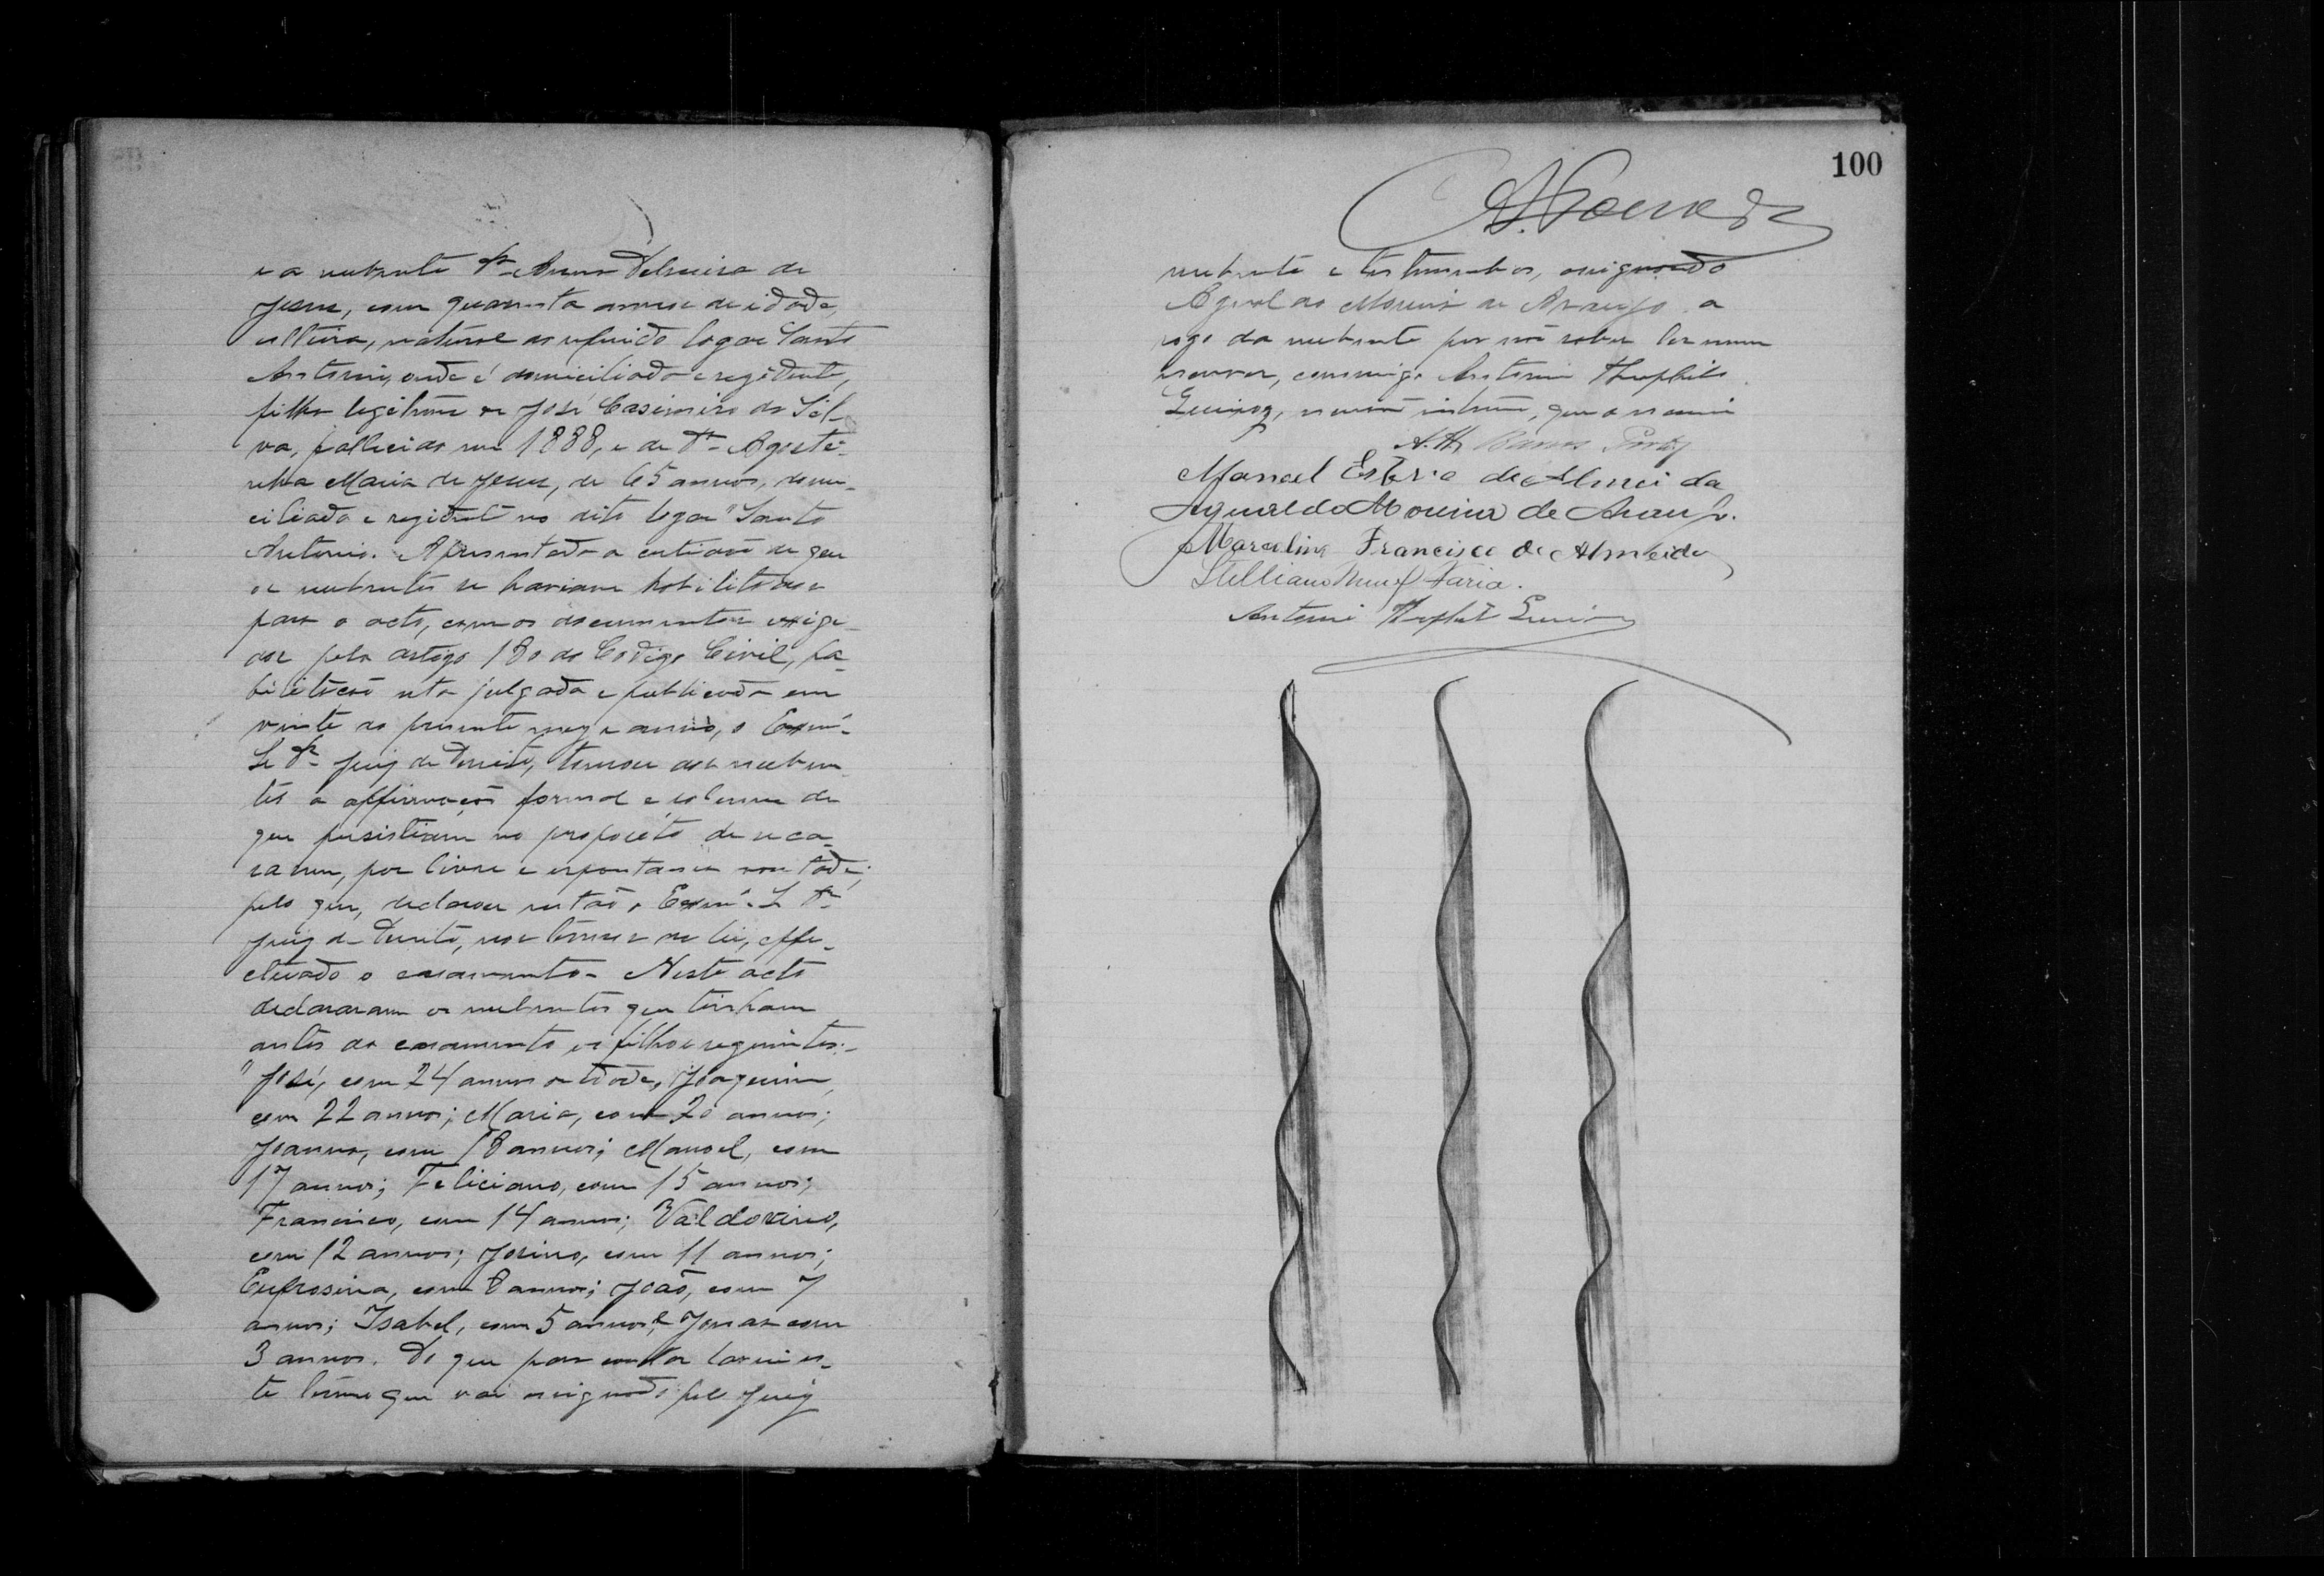 e a nubente D. Anna Delmira de
Jesus, com quarenta annos de idade,
solteira, natural do referido logar Santo
Antonio, onde é domiciliada e residente,
filha legitima de José Casimiro da Sil-
va, fallecido em 1888, e de D. Agosti-
nha Maria de Jesus, de 65 annos, domi-
ciliada e residente no dito logar "Santo
Antonio. Apresentada a certidão de que
os nubentes se haviam habilitados
para o acto, com os documentos exigi-
dos pelo artigo 180 do Codigo Civil, ha-
bilitação esta julgada e publicada em
vinte do presente mez e anno, o Exmº
Sr Dr Juiz de Direito, tomou dos nuben-
tes a affirmação formal e solemne de
que persistiam no proposito de se ca-
sarem, por livre e espontanea vontade;
pelo que, declarou então o Exmº Sr Dr
Juiz de Direito, nos termos da lei, effe-
ctuado o casamento. Neste acto
declararam os nubentes que tinham
antes do casamento os filhos seguintes:-
"José, com 24 annos de idade, Joaquim,
com 22 annos; Maria, com 20 annos;
Joanna, com 18 annos; Manoel, com
17 annos; Feliciano, com 15 annos;
Francisco, com 14 annos; Valdovino,
com 12 annos; Josino, com 11 annos;
Eufrosina, com 8 annos; João, com 7
annos; Isabel, com 5 annos e Jonas com
3 annos. Do que para constar lavrei es-
te termo que vai assignado pelo Juiz
100
nubente e testemunhas, assignando
Agnaldo Moreira de Araujo a
rogo da nubente por não saber ler nem
escrever, commigo Antonio Theophilo
Queiroz, escrivão interino, que o escrevi
Manoel Estevo de Almeida
Agnaldo Moreira de Araujo.
Marcelino Francisco de Almeida
Stelliano Faria.
Antonio Theophilo Queiroz